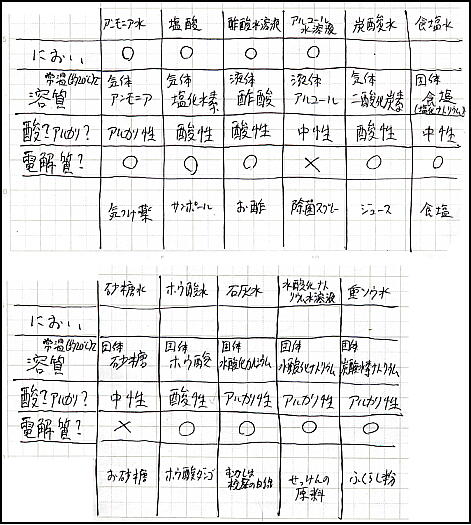 アンモニア水 塩酸 酢酸水溶液 アルコール水溶液 炭酸水 食塩水
におい ○ ○ ○ ○ . .
常温(約20℃)で
溶質 気体 アンモニア 気体 塩化水素 液体 酢酸 液体 アルコール 気体 二酸化炭素 固体 食塩 (塩化ナトリウム)
酸?アルカリ? アルカリ性 酸性 酸性 中性 酸性 中性
電解質? ○ ○ ○ × ○ ○
気つけ薬 サンポール お酢 除菌スプレー ジュース 食塩
砂糖水 ホウ酸水 石灰水 水酸化ナトリウム水溶液 重ソウ水
におい . . . . .
常温(約20℃)で
溶質 固体 砂糖 固体 ホウ酸 固体 水酸化カルシウム 固体 水酸化ナトリウム 固体 炭酸水素ナトリウム
酸?アルカリ? 中性 酸性 アルカリ性 アルカリ性 アルカリ性
電解質? × ○ ○ ○ ○
お砂糖 ホウ酸ダンゴ むかしは 校庭の白線 せっけんの原料 ふくらし粉